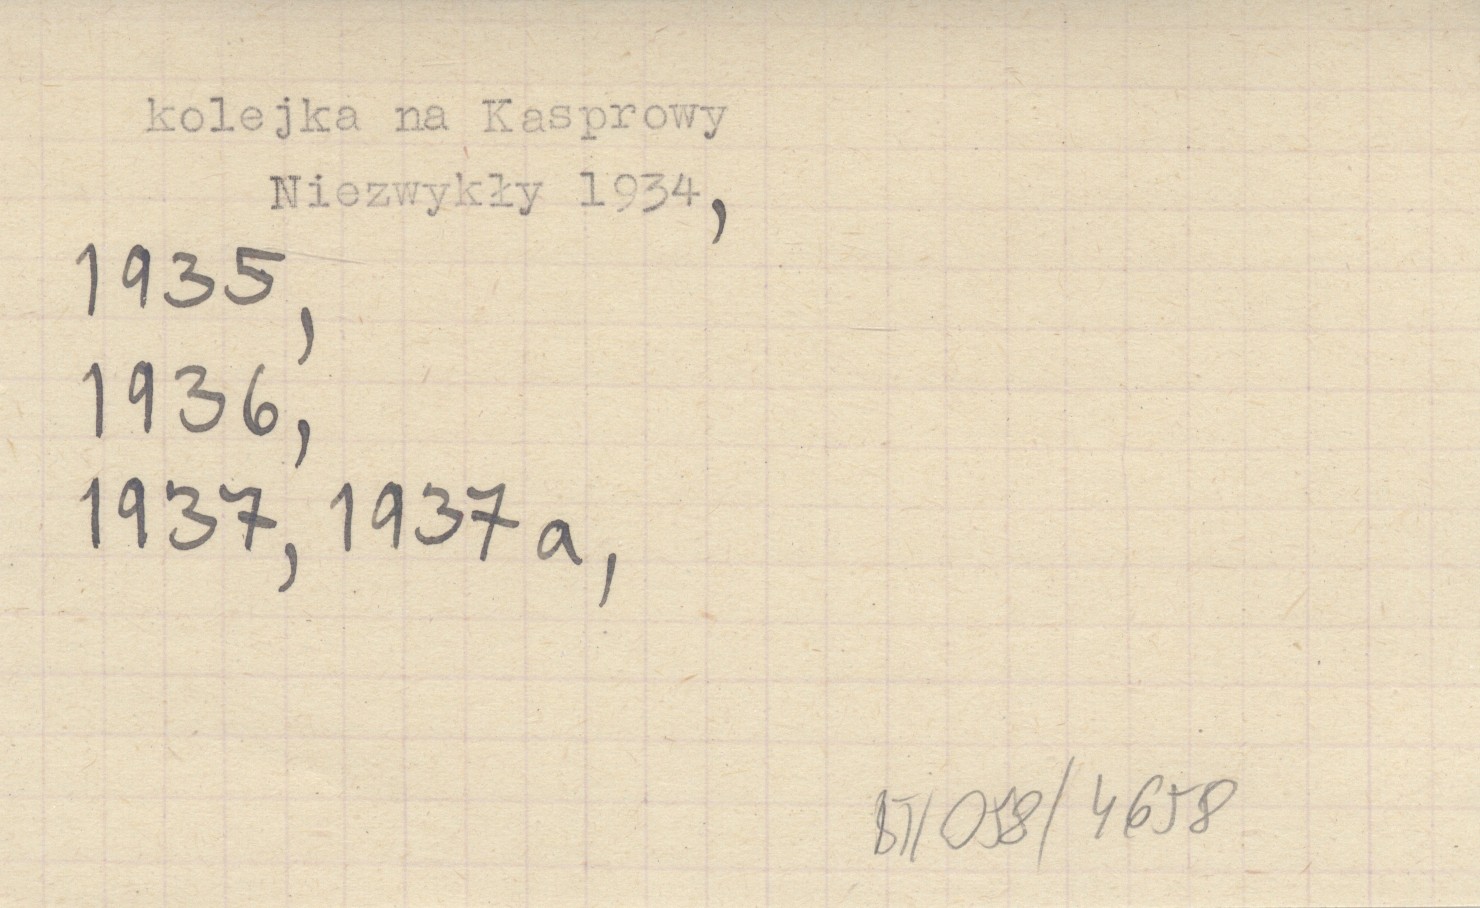 kolejka na Kasprowy
Niezwykły 1934,
1935,
1936,
1937, 1937a,
BT/058/4658